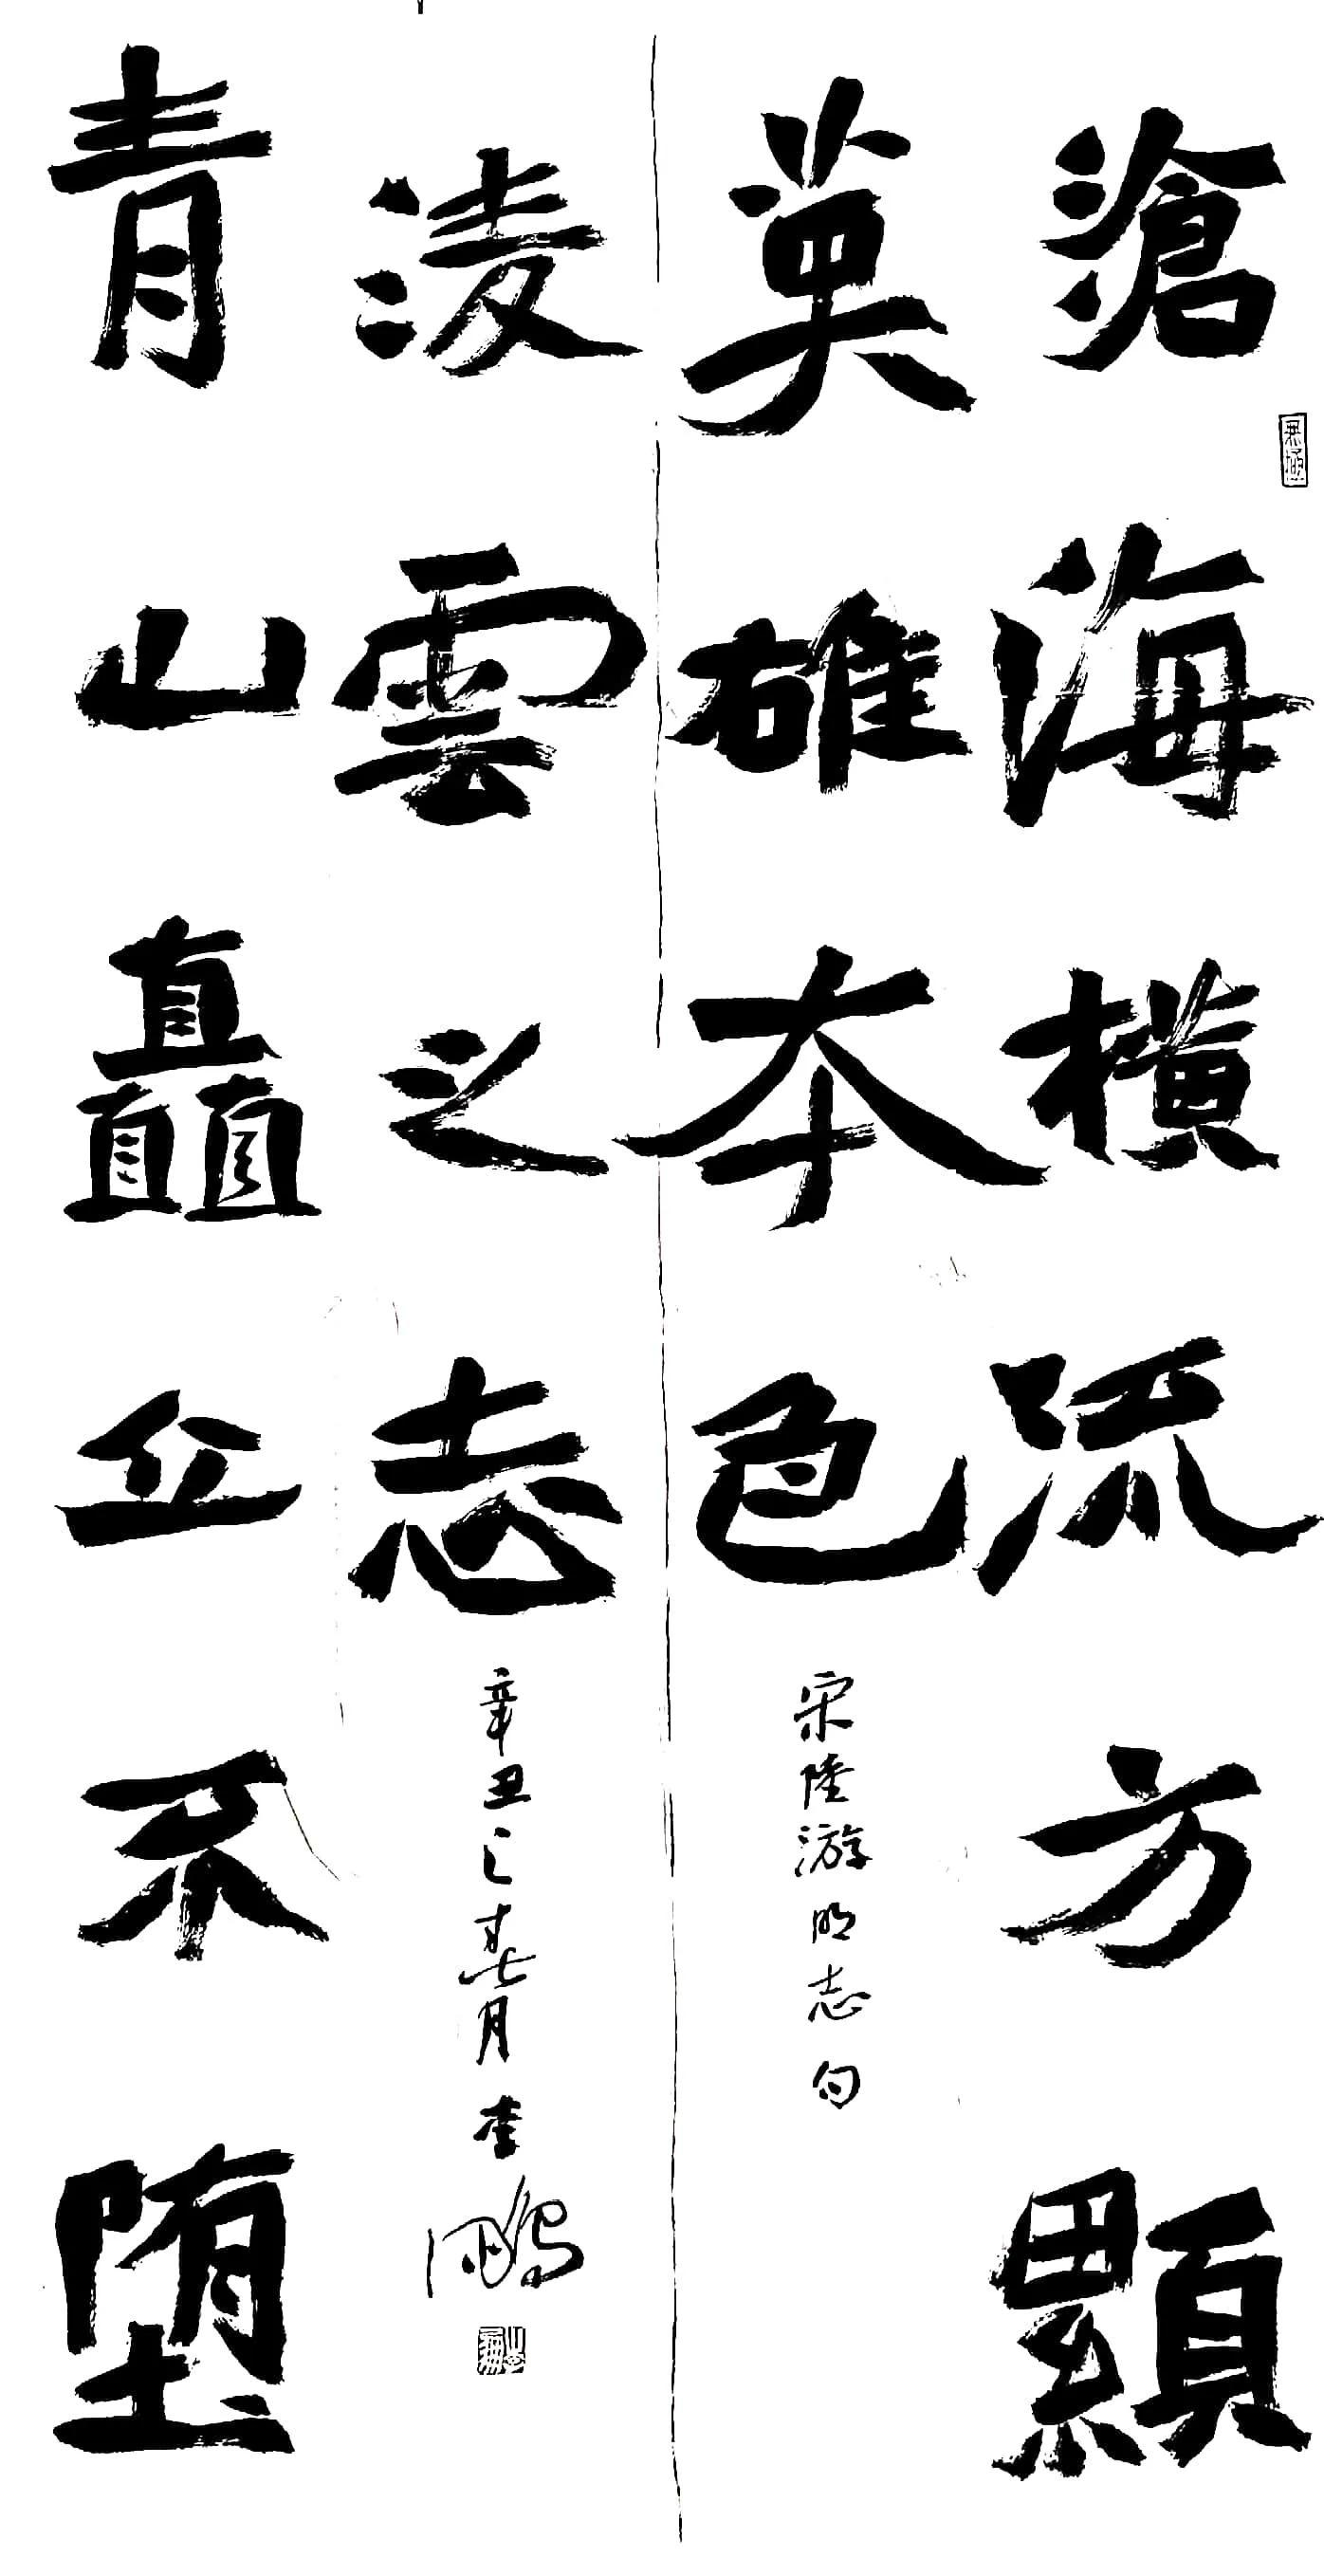 滄海横流方顯
英雄本色
宋陸游明志句
青山矗立不堕
淩雲之志
辛丑之月李鵬